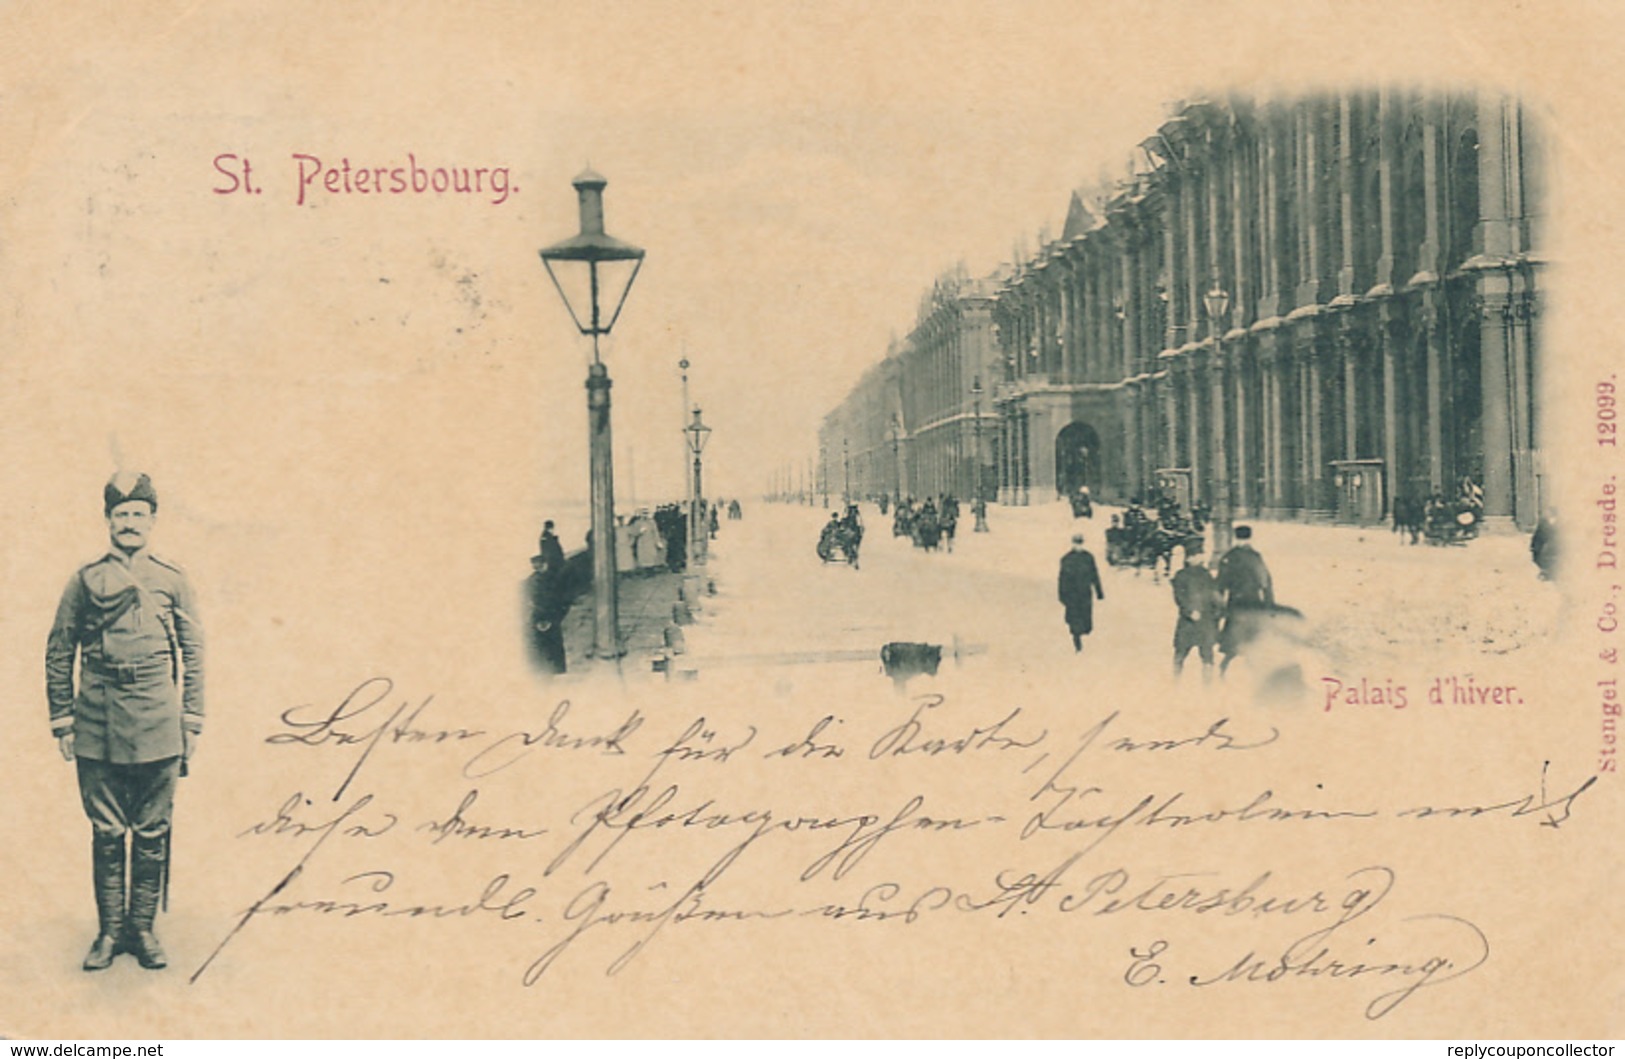 St. Petersbourg.
Palais d'hiver.
Stengel & Co., Dresde. 12099.
Besten Dank für die Karte, sende
diese dem Pfotographen-Töchterlein mit
freundl. Grüßen aus St. Petersburg
E. Möhring.
www.delcampe.net
replycouponcollector